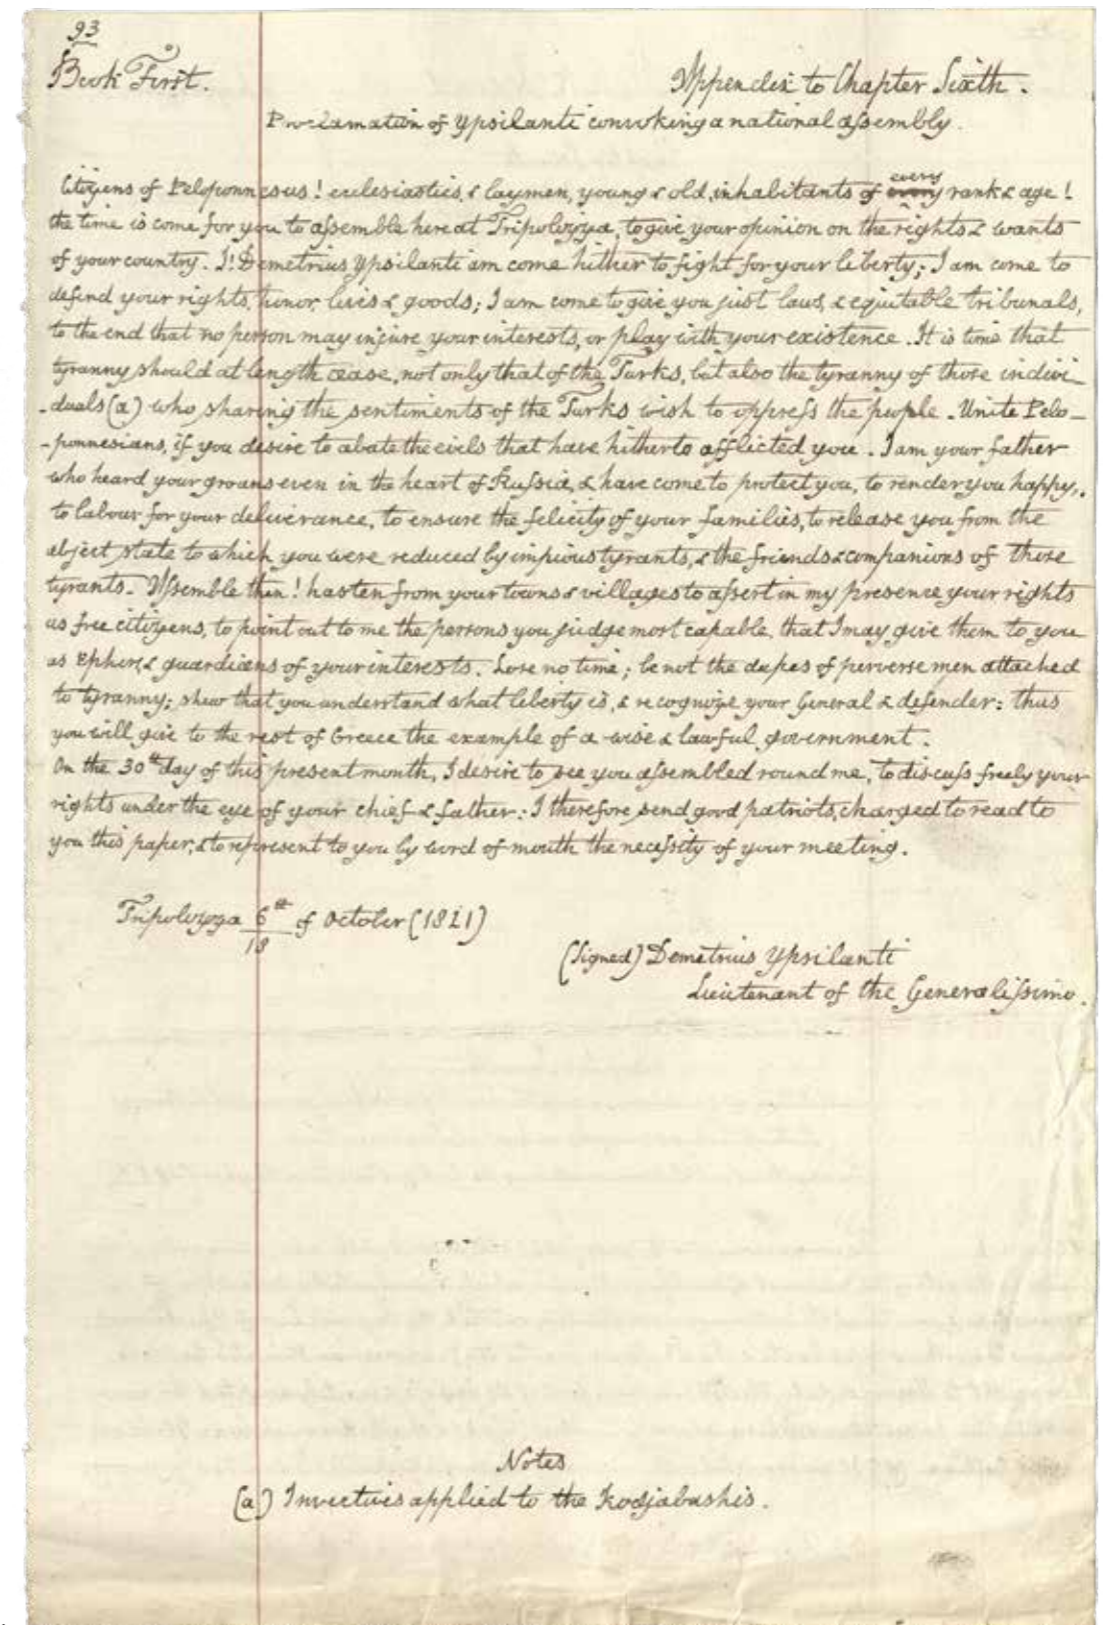 93
Book First.
Appendix to Chapter Sixth.
Proclamation of Ypsilanti convoking a national assembly.
Citizens of Peloponnesus! ecclesiastics, & laymen, young & old, inhabitants of every rank & age!
the time is come for you to assemble here at Tripolizza, to give your opinion on the rights & wants
of your country. I! Demetrius Ypsilanti am come hither to fight for your liberty; I am come to
defend your rights, honor, lives & goods; I am come to give you just laws, & equitable tribunals,
to the end that no person may injure your interests, or play with your existence. It is time that
tyranny should at length cease, not only that of the Turks, but also the tyranny of those indivi-
-duals (a) who sharing the sentiments of the Turks wish to oppress the people. Unite Pelo-
-ponnesians, if you desire to abate the evils that have hitherto afflicted you. I am your father
who heard your groans even in the heart of Russia, & have come to protect you, to render you happy,
to labour for your deliverance, to ensure the felicity of your families, to release you from the
abject state to which you were reduced by impious tyrants, & the friends & companions of those
tyrants. Assemble then! hasten from your towns & villages to assert in my presence your rights
as free citizens, to point out to me the persons you judge most capable, that I may give them to you
as Ephors, & guardians of your interests. Lose no time; be not the dupes of perverse men attached
to tyranny; shew that you understand what liberty is, & recognize your General & defender: thus
you will give to the rest of Greece the example of a wise & lawful government.
On the 30th day of this present month, I desire to see you assembled round me, to discuss freely your
rights under the eye of your chief & father: I therefore send good patriots, charged to read to
you this paper, & to represent to you by word of mouth the necessity of your meeting.
Tripolizza 6th/18 of October (1821)
(Signed) Demetrius Ypsilanti
Lieutenant of the Generalissimo.
Notes
(a) Invectives applied to the Kodjabashis.